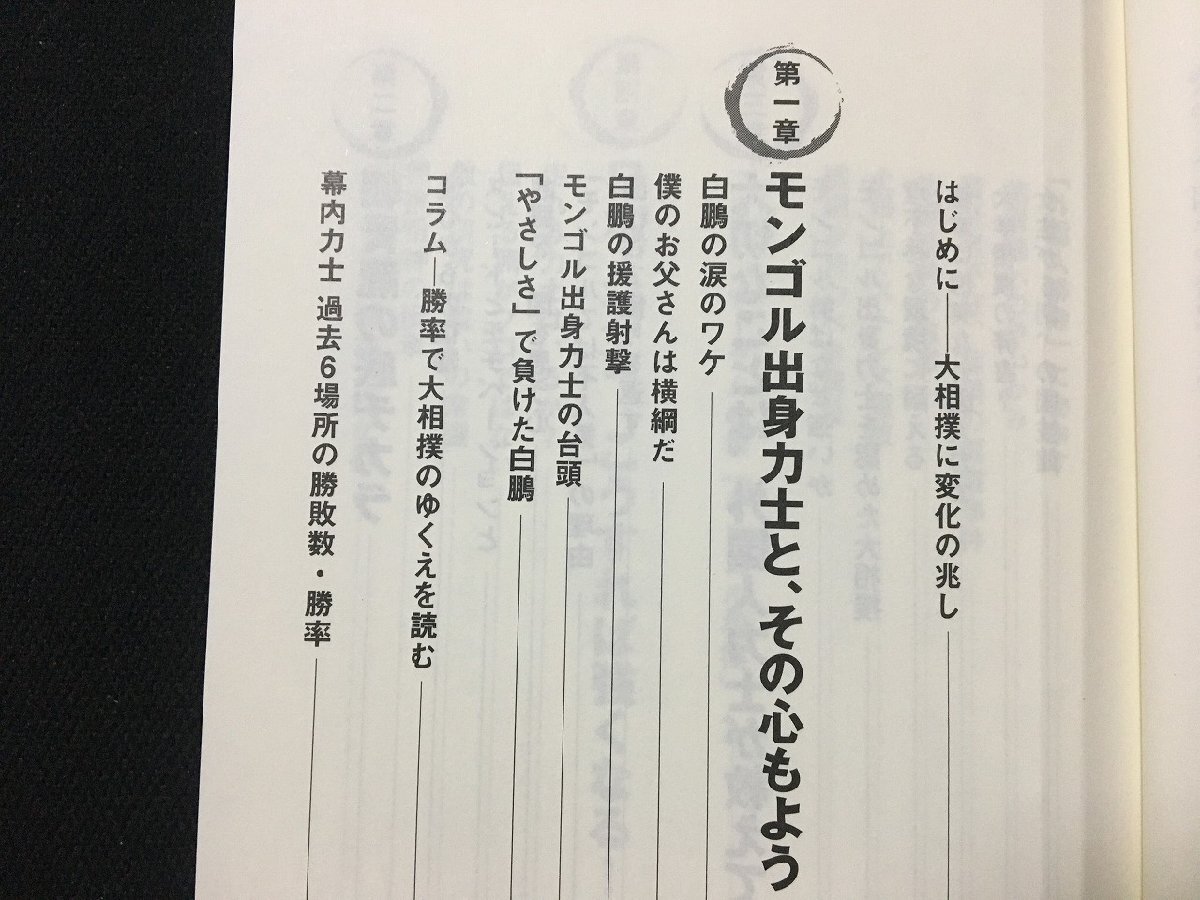 はじめに――大相撲に変化の兆し
第一章
モンゴル出身力士と、その心もよう
白鵬の涙のワケ
僕のお父さんは横綱だ
白鵬の援護射撃
モンゴル出身力士の台頭
「やさしさ」で負けた白鵬
コラム―勝率で大相撲のゆくえを読む
幕内力士 過去6場所の勝敗数・勝率